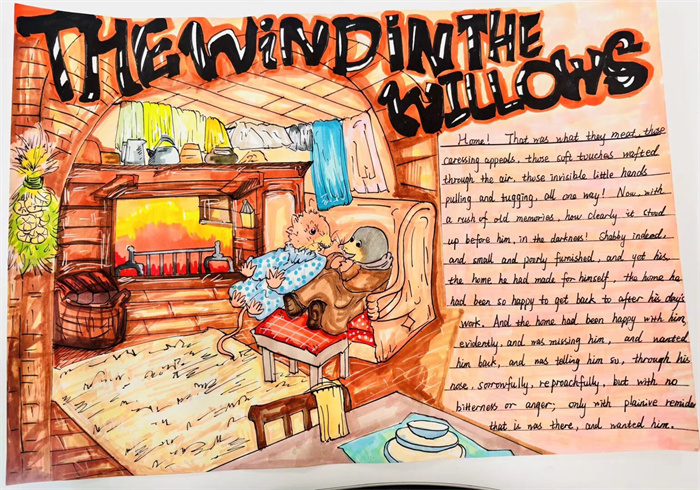 THE WIND IN THE
WILLOWS
Home! That was what they meat, those
caressing appeals, those soft touches wafted
through the air, those invisible little hands
pulling and tugging, all one way! Now, with
a rush of old memories, how clearly it stood
up before him, in the darkness! Shabby indeed,
and small and poorly furnished, and yet his,
the home he had made for himself, the home he
had been so happy to get back to after his day's
work. And the home had been happy with him,
evidently, and was missing him, and wanted
him back, and was telling him so, through his
nose, sorrowfully, reproachfully, but with no
bitterness or anger; only with plainive reminder
that is was there, and wanted him.